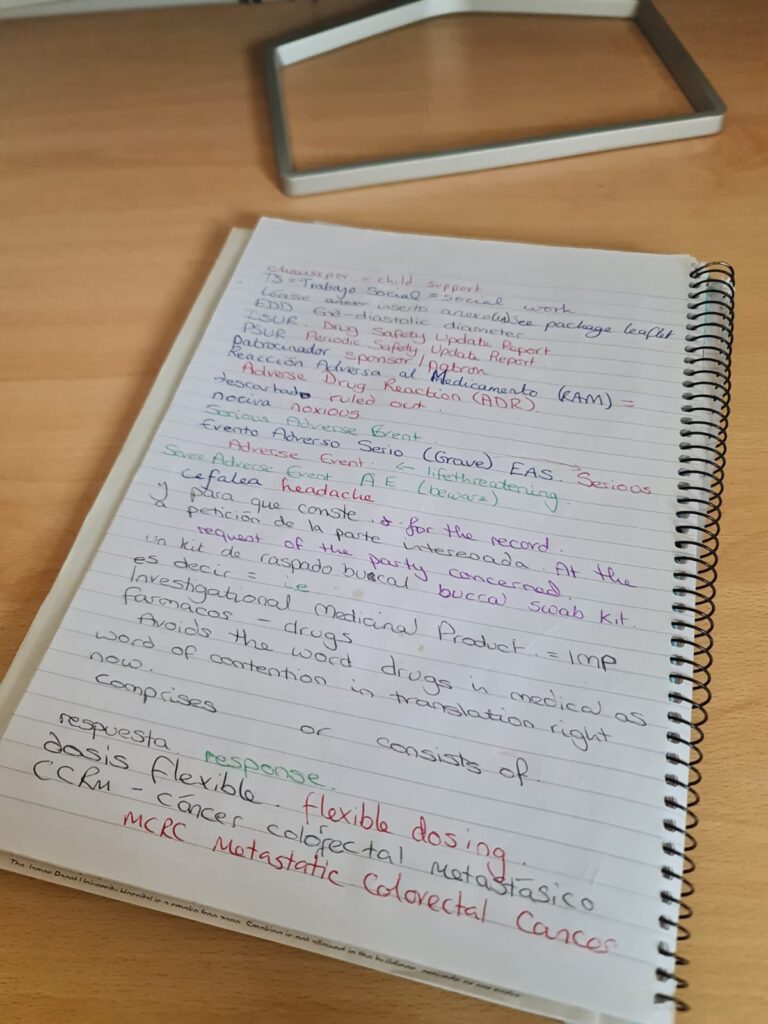 = child support
TS = Trabajo Social = social work
see package leaflet
EDD End-diastolic diameter
Drug Safety Update Report
PSUR Periodic Safety Update Report
Patrocinador sponsor /
Reacción Adversa al Medicamento (RAM) =
Adverse Drug Reaction (ADR)
descartado ruled out.
nociva noxious
Serious Adverse Event.
Evento Adverso Serio (Grave) EAS. Serious
Adverse Event. ← lifethreatening.
Adverse Event AE (beware)
Cefalea headache
y para que conste. & for the record.
a petición de la parte interesada. At the
request of the party concerned.
un kit de raspado bucal buccal swab kit.
es decir = i.e
Investigational Medicinal Product. = IMP
farmacos - drugs
Avoids the word drugs in medical as
word of contention in translation right
now.
Comprises or consists of.
respuesta response.
dosis flexible. flexible dosing.
CCRM - cáncer colorectal metastásico
MCRC Metastatic Colorectal Cancer
The James Paget University Hospital is a smoke free zone. Smoking is not allowed in the buildings,